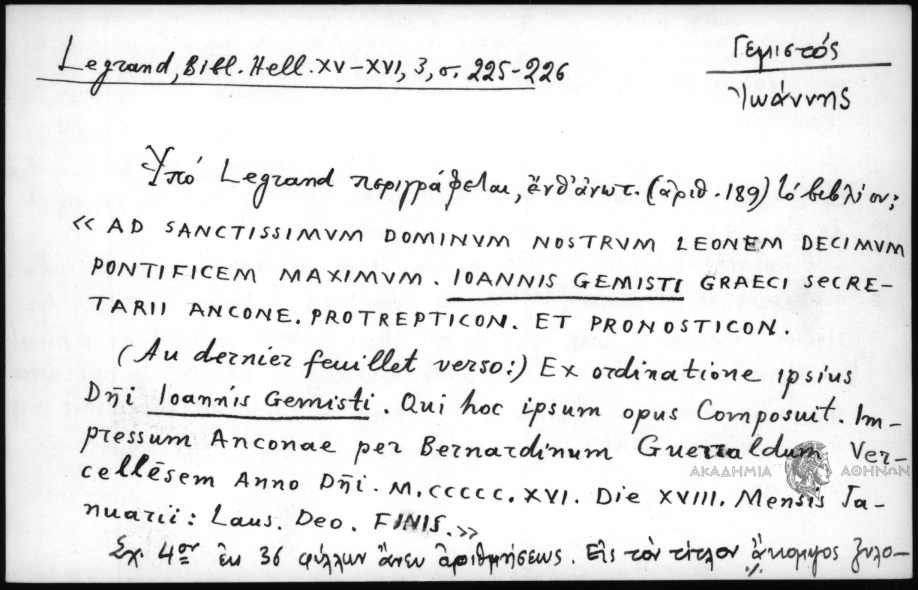 Legrand, Bibl. Hell. XV-XVI, 3, σ. 225-226
Γεμιστός
Ἰωάννης
Ὑπό Legrand περιγράφεται, ἔνθ' ἀνωτ. (ἀριθ. 189) τό βιβλίον;
« AD SANCTISSIMVM DOMINVM NOSTRVM LEONEM DECIMVM
PONTIFICEM MAXIMVM. IOANNIS GEMISTI GRAECI SECRE-
TARII ANCONE. PROTREPTICON. ET PRONOSTICON.
(Au dernier feuillet verso:) Ex ordinatione ipsius
Dñi Ioannis Gemisti. Qui hoc ipsum opus Composuit. Im-
pressum Anconae per Bernardinum Guerraldum Ver-
cellēsem Anno Dñi. M. CCCCC. XVI. Die XVIII. Mensis Ja-
nuarii: Laus. Deo. FINIS.»
Σχ. 4ον ἐκ 36 φύλλων ἄνευ ἀριθμήσεως. Εἰς τὸν τίτλον ἄκομψος ξυλο-
ΑΚΑΔΗΜΙΑ ΑΘΗΝΩΝ